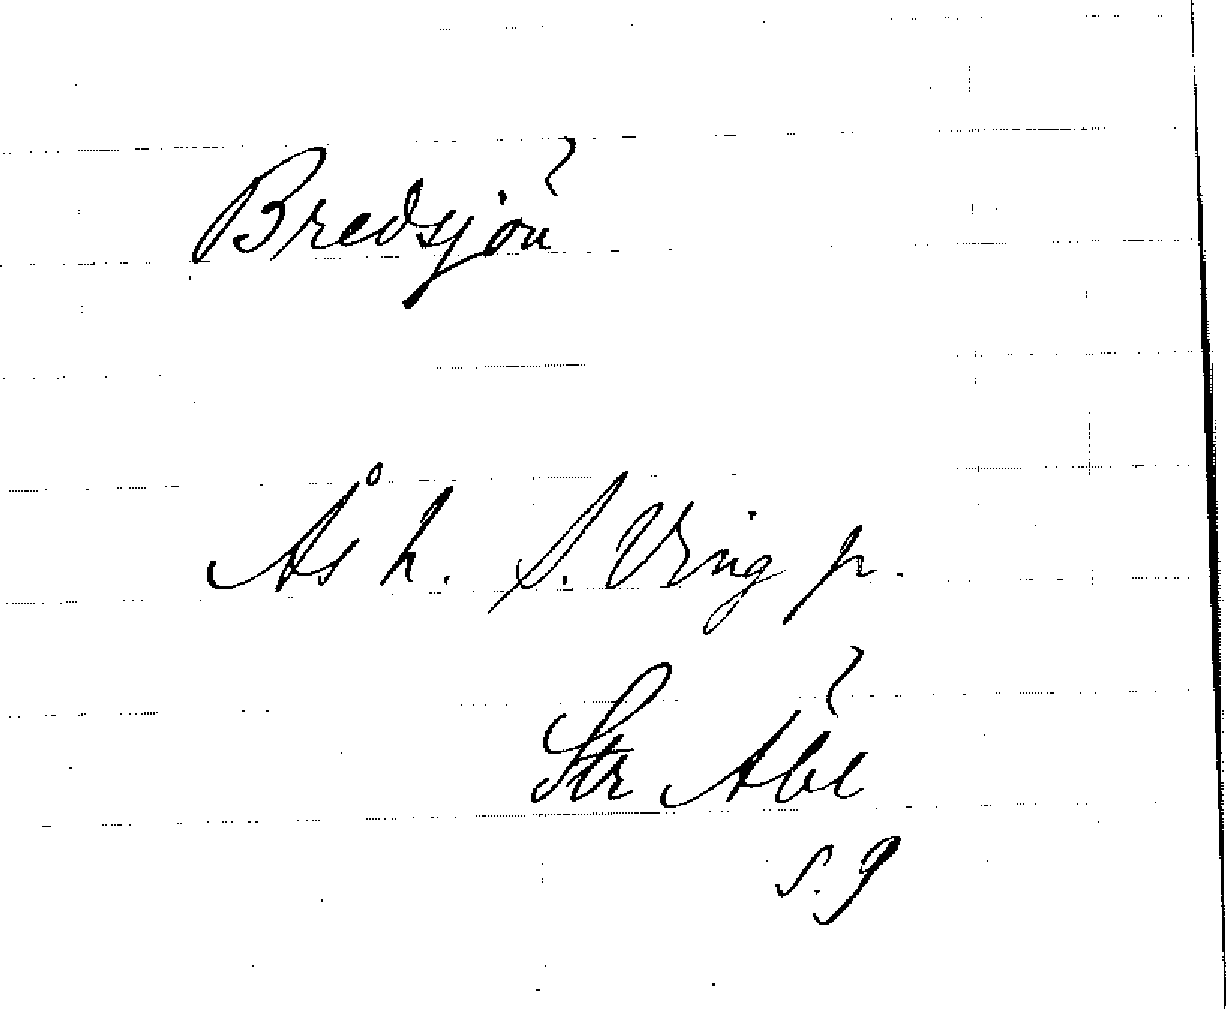 Bredsjön
Ås h. S. Ving p.
Str Åbl
s. 9